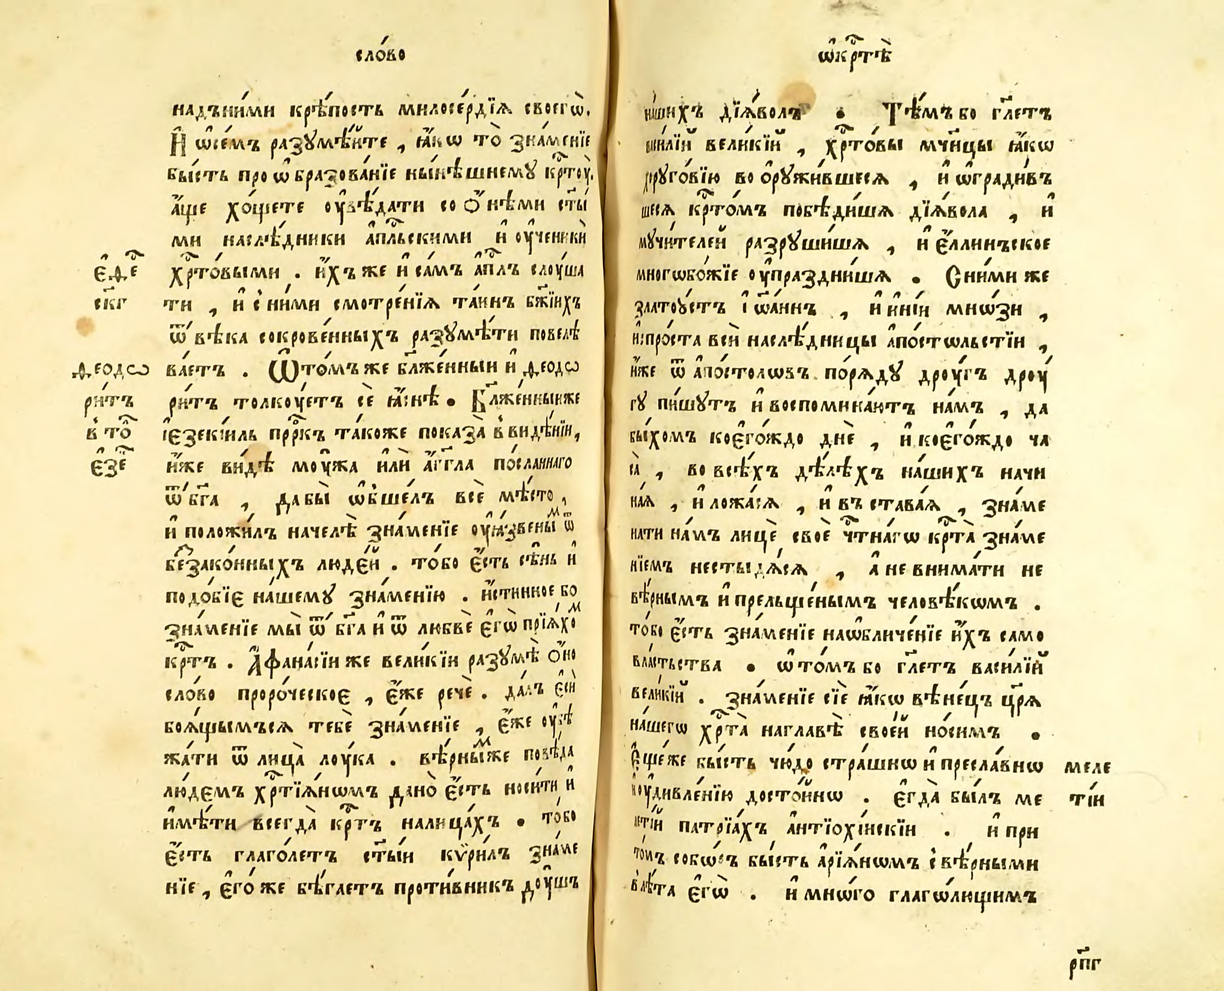 сло́во
надъни́ми крѣ́пость милосе́рдїѧ своегѡ̀.
И҆ ѡ҆се́мъ разꙋмѣ́йте , ꙗ҆́кѡ то̀ зна́менїе
бы́сть проѡ҆бразова́нїе ны́нѣшнемꙋ крⷭ҇тоу̀.
а҆́ще хо́щете оу҆вѣ́дати со ѻ҆́нѣми ст҃ы́
ми наслѣ́дники а҆пⷭ҇льскими и҆ оу҆ченикѝ
хрⷭ҇то́выми . и҆́хъже и҆ са́мъ а҆пⷭ҇лъ слоу́ша
є҆ф҃е҃
ти , и҆ с ни́ми смотре́нїѧ та́инъ бж҃їихъ
ск҃г
ѿ вѣ́ка сокрове́нныхъ разꙋмѣ́ти повелѣ
ва́етъ . Ѡ҆то́мъже бл҃же́нныи и҆ ѳеодѡ
ѳеодѡ
ри́тъ толкоу́етъ сѐ ꙗ҆́снѣ . Бл҃же́нныиже
ри́тъ
і҆езекі́иль прⷪ҇ркъ та́коже показа̀ в видѣ́нїи,
в то҇
и҆́же ви́дѣ моу́жа и҆лѝ а҆́гг҃ла по́сланнаго
є҆зе҇
ѿ бг҃а , дабы̀ ѡ҆бше́лъ всѐ мѣ́сто ,
и҆ положи́лъ начелѣ̀ зна́менїе оу҆ꙗ҆́звены ѿ
беззако́нныхъ люде́й . то́бо є҆́сть сѣ́нь и҆
подо́бїе на́шемꙋ зна́менїю . и҆́стинное бо
зна́менїе мы̀ ѿ бг҃а и҆ ѿ любвѐ є҆гѡ̀ прїѧ́хоⷨ
крⷭ҇тъ . А҆ѳана́сїи же вели́кїи разꙋмѣ̀ ѻ҆́но
сло́во проро́ческое , є҆́же речѐ . да́лъ є҆сѝ
боѧ́щымъсѧ тебѐ зна́менїе , є҆́же оу҆бѣ
жа́ти ѿ лица̀ лоу́ка . вѣ́рныⷨже повѣ́да
лю́демъ хрⷭ҇тїѧ́нѡмъ дано̀ є҆́сть носи́ти и҆
и҆мѣ́ти всегда̀ крⷭ҇тъ налица́хъ . то́бо
є҆́сть глаго́летъ ст҃ы́и кѷри́лъ зна́ме
нїе , є҆го́же бѣ́гаетъ проти́вникъ доу́шъ
ѡ҆ крⷭ҇тѣ̀
на́шихъ дїѧ́волъ . Тѣ́мъбо гл҃етъ
васи́лїй вели́кїй , хрⷭ҇то́вы мч҃ницы ꙗ҆́кѡ
хороуго́вїю во ѻ҆рꙋжи́вшесѧ , и҆ ѡ҆гради́въ
шесѧ крⷭ҇то́мъ побѣди́шѧ дїѧ́вола , и҆
мꙋчи́телей разрꙋши́шѧ , и҆ є҆́ллиньское
многѡбо́жїе оу҆праздни́шѧ . Сни́ми же
златоу́стъ і҆ ѡ҆а́ннъ , и҆ и҆нїи мнѡ́зи ,
и҆про́ста всѝ наслѣ́дницы а҆пѡ́стѡльстїи ,
и҆́же ѿ а҆по́столѡвъ порѧ́дꙋ дроу́гъ дроу́
гꙋ пи́шꙋтъ и҆ воспомина́ютъ на́мъ , да
бы́хомъ коегѡ́ждо днѐ , и҆ коегѡ́ждо ча
са̀ , во всѣ́хъ дѣ́лѣхъ на́шихъ начи
на́ѧ , и҆ ложа́сѧ , и҆ въ става́ѧ , зна́ме
нати на́мъ лицѐ своѐ чⷭ҇тна́гѡ крⷭ҇та̀ зна́ме
нїемъ нестыдѧ́сѧ , а҆ не внима́ти не
вѣ́рнымъ и҆ прельще́нымъ человѣ́кѡмъ .
то́бо є҆́сть зна́менїе наѡ҆бличе́нїе и҆́хъ само
вла́стьства . ѡ҆ то́мъ бо гл҃етъ васи́лїй
вели́кїй . зна́менїе сїѐ ꙗ҆́кѡ вѣне́цъ цр҃ѧ̀
на́шегѡ хрⷭ҇та̀ наглавѣ̀ свое́й но́симъ .
Є҆ще́же бы́сть чю́до стра́шнѡ и҆ пресла́внѡ
меле
и҆ оу҆дивле́нїю досто́йнѡ . є҆гда̀ бы́лъ ме
ті́и
летїй патрїа́хъ а҆нтїохі́нскїи . и҆ при
то́мъ собѡ́ръ бы́сть а҆рїѧ́нѡмъ с вѣ́рными
в лѣ́та є҆гѡ̀ . и҆ мнѡ́го глагѡ́лющимъ
рп҃г